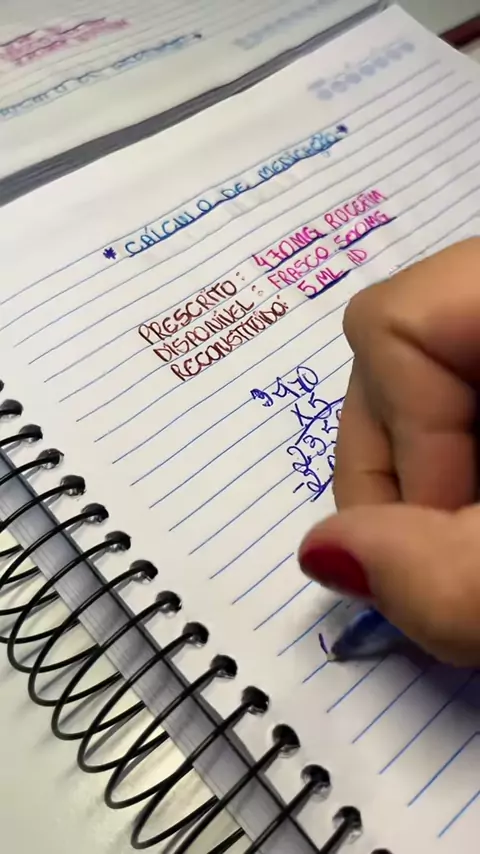 * CÁLCULO DE MEDICAÇÃO *
PRESCRITO: 470MG ROCEFIM
DISPONÍVEL: FRASCO 500MG
RECONSTITUÍDO: 5 ML AD
3 470
x 5
235